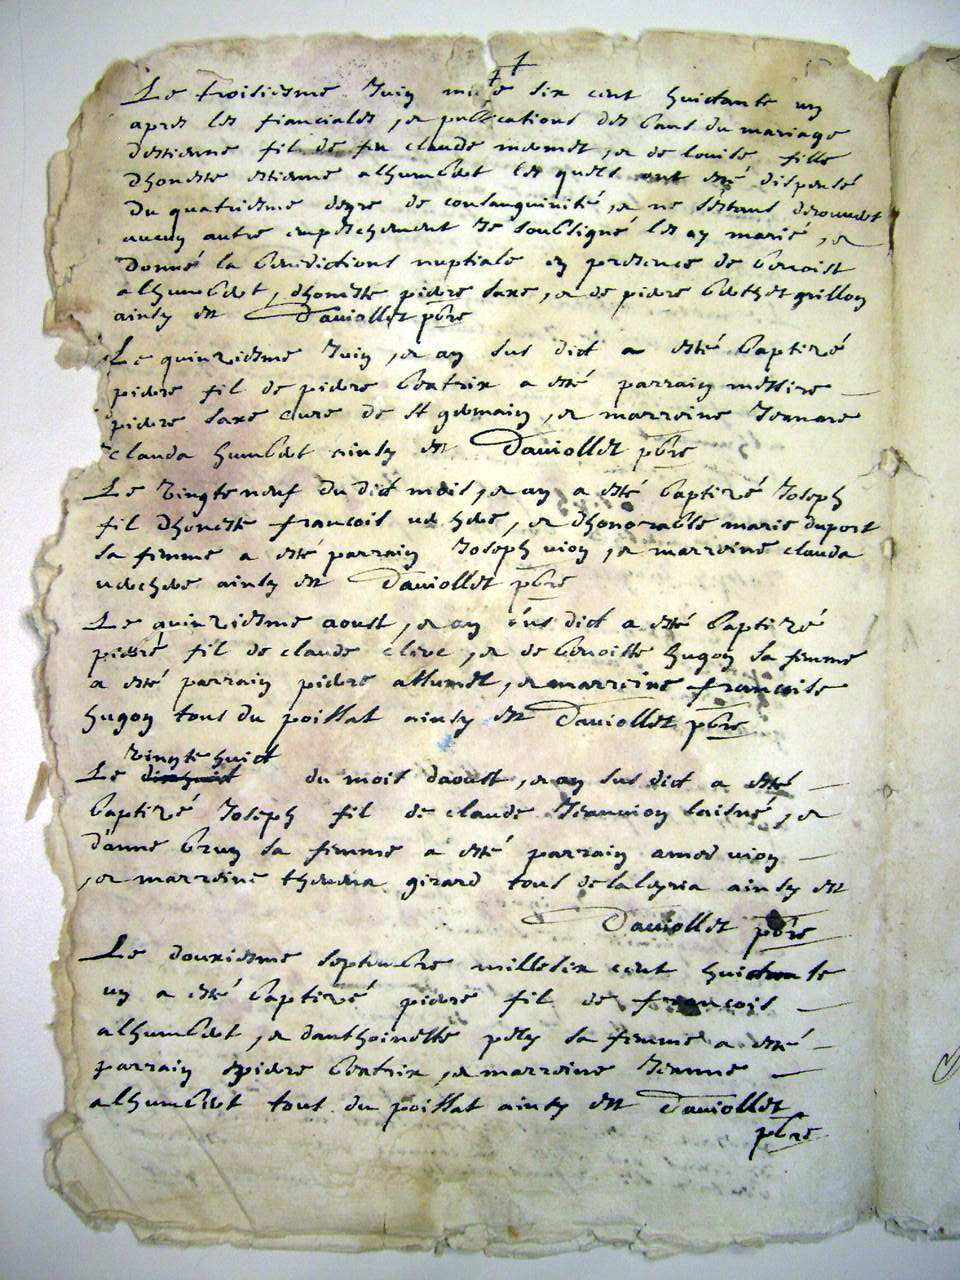 Le troisiesme Juin mille six cent huictante un
apres les fiancialles, et publications des bans du mariage
destienne fil de feu claude mermet, et de louise fille
dhoneste estienne alhumbert lesquels ont esté dispensé
du quatriesme degre de consanguinité, et ne sestant descouvert
aucun autre empeschement Je soubsigné les ay marié, et
donné la benedictions nuptiale en presence de benoist
alhumbert, dhoneste pierre saxe, et de pierre berthet grillon
ainsy est Daviollet pbre
Le quinziesme Juin, et an sus dict a esté baptizé
pierre fil de pierre beatrix a esté parrain messire
pierre saxe cure de st germain, et marreine Jennare
clauda humbert ainsy est Daviollet pbre
Le vingteneuf du dict mois, et an a esté baptizé Joseph
fil dhoneste francois, et dhonorable marie duport
sa femme a esté parrain Joseph vion, et marreine clauda
ainsy est Daviollet pbre
Le quinziesme aoust, et an sus dict a esté baptizé
pierre fil de claude, et de benoiste hugon sa femme
a esté parrain pierre allumet, et marreine francoise
hugon tous du poissat ainsy est Daviollet pbre
vingte huict
Le du mois daoust, et an sus dict a esté
baptizé Joseph fil de claude Jeanvion laisné, et
danne brun sa femme a esté parrain amed vion
, et marreine thevena girard tous de laleyria ainsy est
Daviollet pbre
Le douziesme septembre mille six cent huictante
un a esté baptizé pierre fil de francois
alhumbert, et danthoinette pely sa femme a esté
parrain pierre beatrix, et marreine Jeanne
alhumbert tous du poissat ainsy est Daviollet
pbre